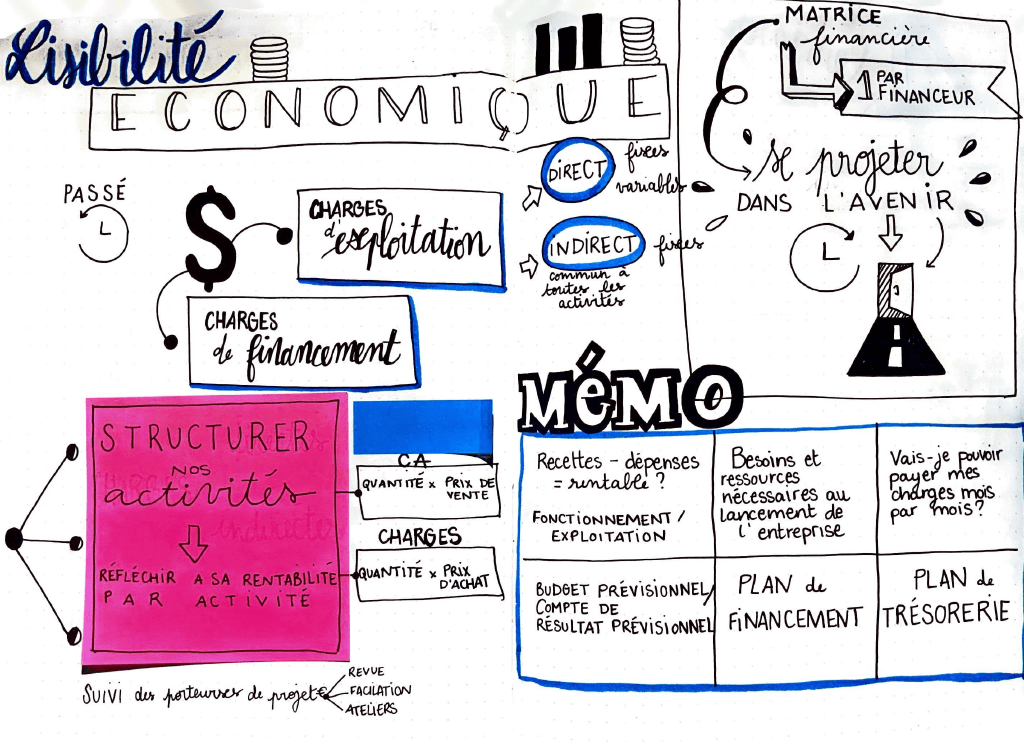 Lisibilité
ECONOMIQUE
PASSÉ
CHARGES
d'exploitation
CHARGES
de financement
DIRECT
fixes
variables
INDIRECT
fixes
commun à
toutes les
activités
MATRICE
financière
1 PAR
FINANCEUR
se projeter
DANS L'AVENIR
STRUCTURER
NOS
activités
RÉFLÉCHIR A SA RENTABILITÉ
PAR ACTIVITÉ
CA
QUANTITÉ x PRIX DE
VENTE
CHARGES
QUANTITÉ x PRIX
D'ACHAT
SUIVI des porteurses de projet
REVUE
FACILATION
ATELIERS
MéMO
Recettes - dépenses
= rentable ?
FONCTIONNEMENT /
EXPLOITATION
Besoins et
ressources
nécessaires au
lancement de
l'entreprise
Vais-je pouvoir
payer mes
charges mois
par mois ?
BUDGET PRÉVISIONNEL/
COMPTE DE
RÉSULTAT PRÉVISIONNEL
PLAN de
FINANCEMENT
PLAN de
TRÉSORERIE